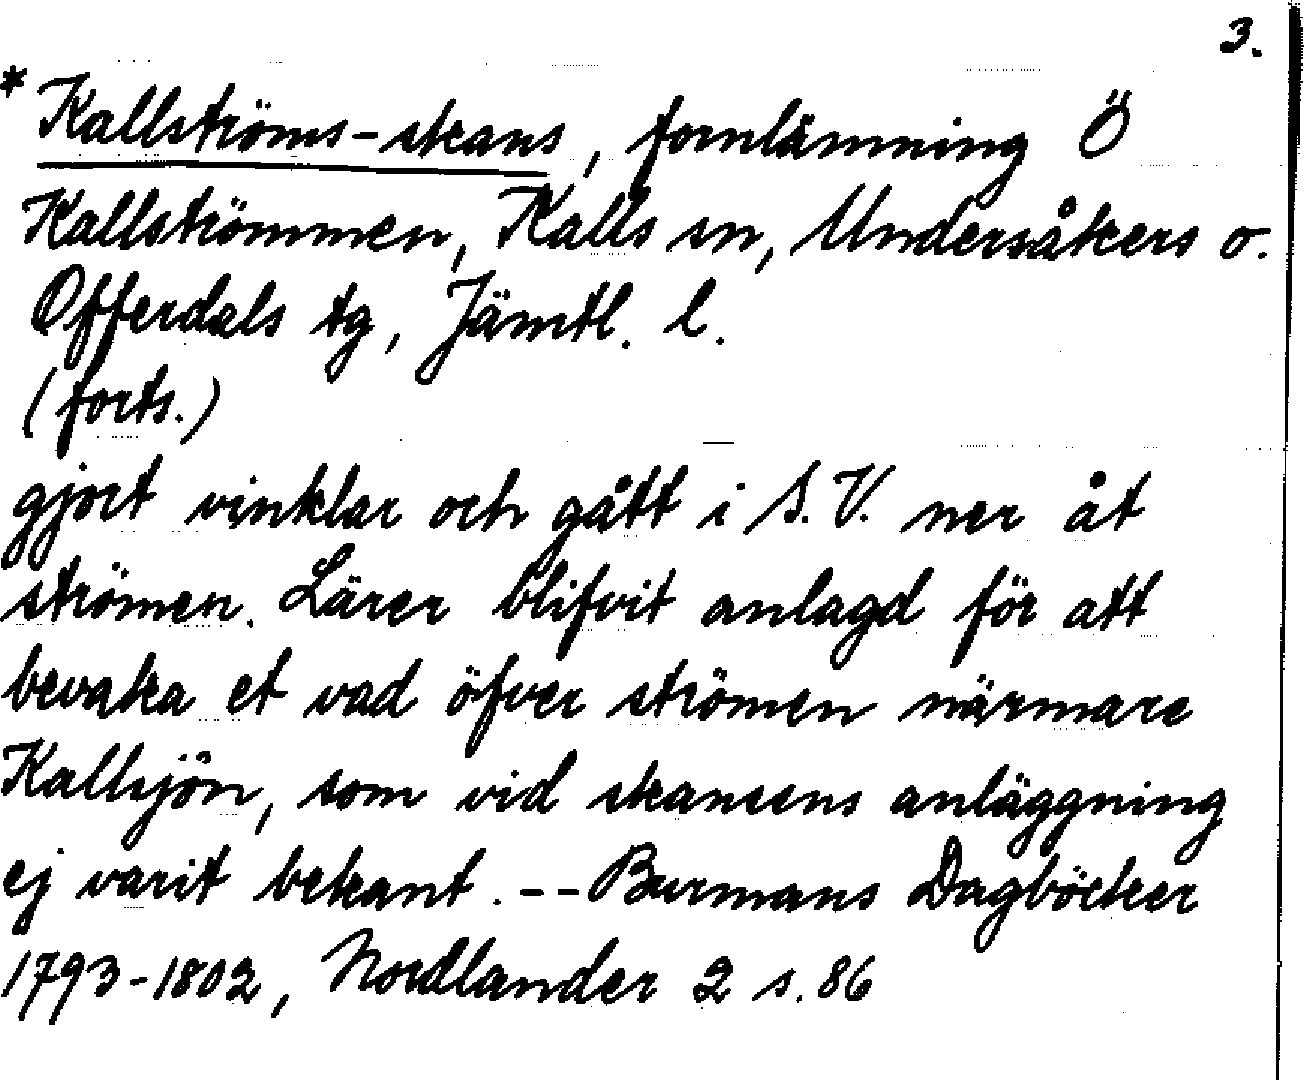 3.
* Kallströms-skans, fornlämning Ö
Kallströmmen, Kalls sn, Undersåkers o.
Offerdals tg, Jämtl. l.
(forts.)
gjort vinklar och gått i S.V. ner åt
strömen. Lärer blifvit anlagd för att
bevaka et vad öfver strömen närmare
Kallsjön, som vid skansens anläggning
ej varit bekant. -- Burmans Dagböcker
1793-1802, Nordlander 2 s. 86